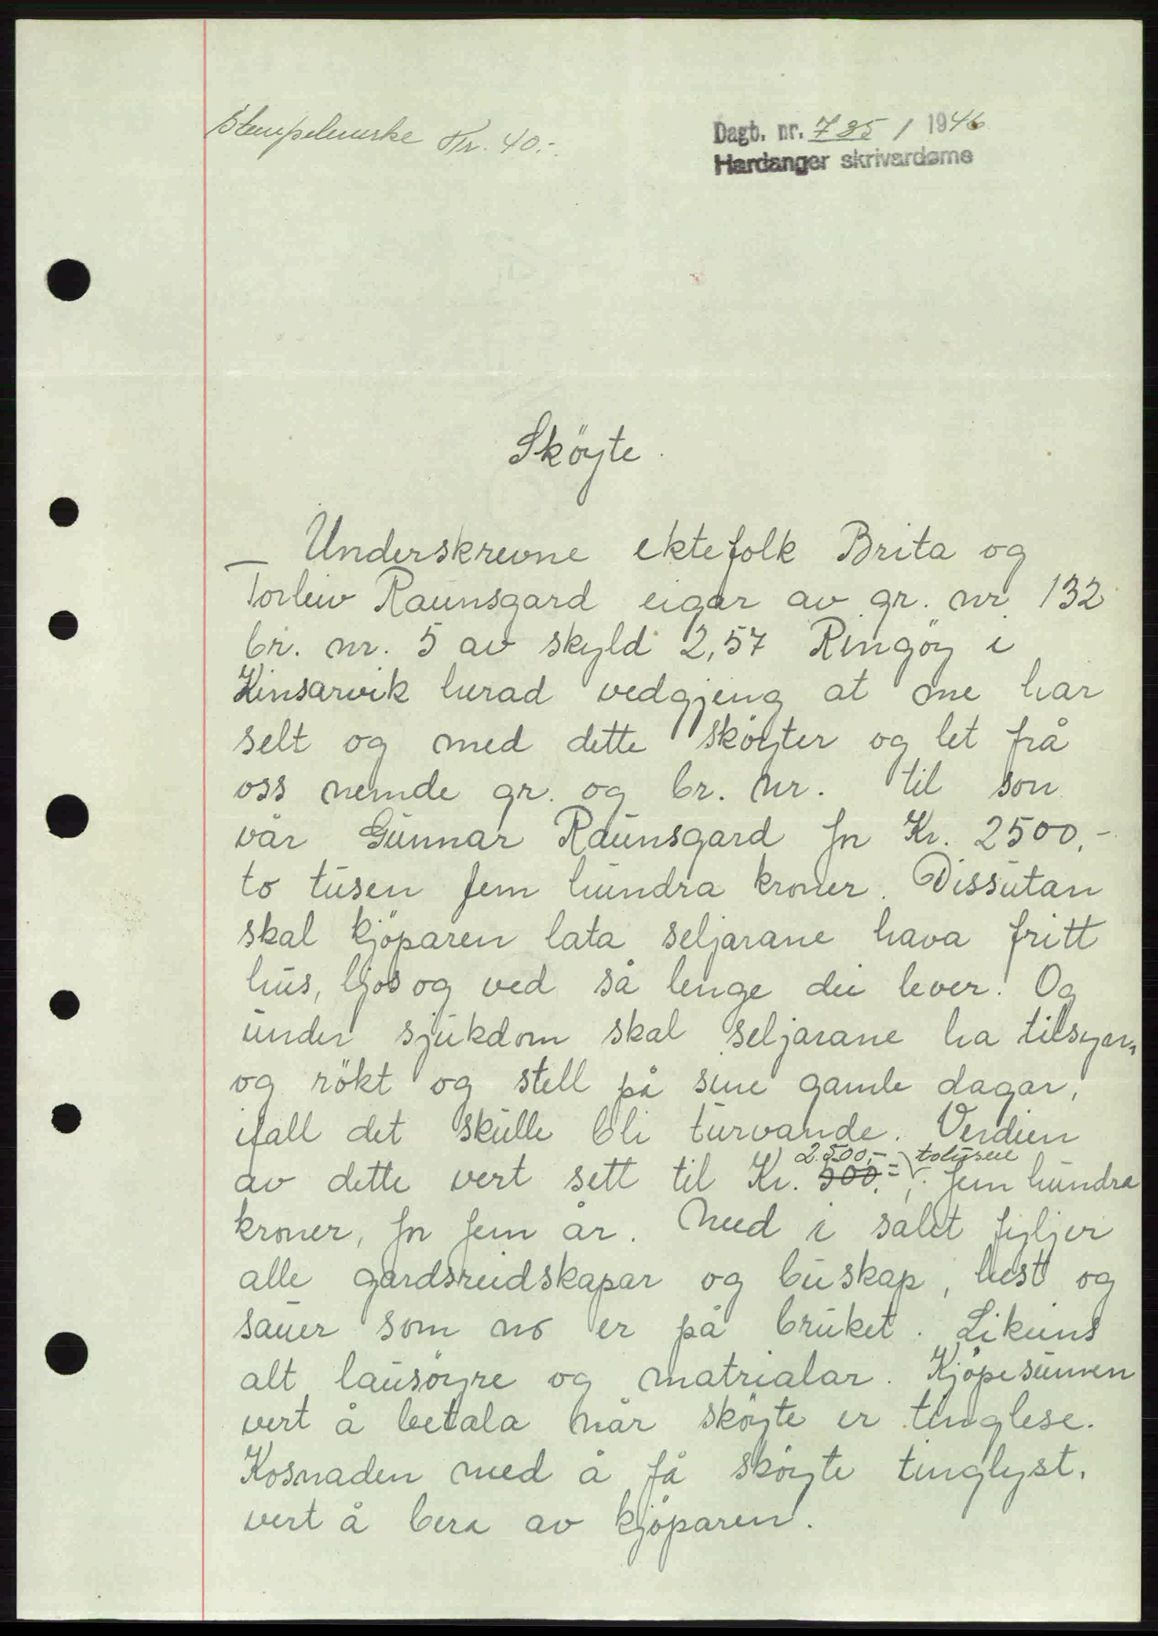 Stempelmerke Kr. 40.-
Dagb. nr. 785 / 1946
Hardanger skrivardøme
Sköyte.
Underskrevne ektefolk Brita og
Torleiv Raunsgard eigar av gr. nr 132
br. nr. 5 av skyld 2,57 Ringöy i
Kinsarvik herad vedgjeng at me har
selt og med dette sköyter og let frå
oss nemde gr. og br. nr. til son
vår Gunnar Raunsgard for Kr. 2500,-
to tusen fem hundra kroner. Dissutan
skal kjöparen lata seljarane hava fritt
hus, ljos og ved så lenge dei lever. Og
under sjukdom skal seljarane ha tilsyn
og rökt og stell på sine gamle dagar,
ifall det skulle bli turvande. Verdien
2500,- totusene
av dette vert sett til Kr. 500.-, fem hundra
kroner, for fem år. Med i salet fyljer
alle gardsreidskapar og buskap, hest og
sauer som no er på bruket. Likeins
alt lausöyre og matrialar. Kjöpesumen
vert å betala når sköyte er tinglese.
Kosnaden med å få sköyte tinglyst,
vert å bera av kjöparen.